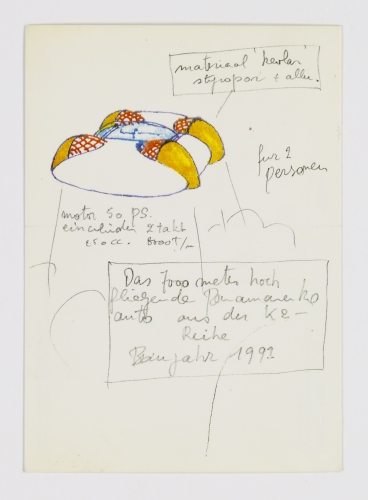 materiaal 'kevlar'
styropor + allu.
für 2
personen
motor 50 PS.
eincilinder 2 takt
250 cc. 8000 T/m
Das 7000 meter hoch
fliegende Panamarenko
auto aus der K2-
Reihe
Baujahr 1991